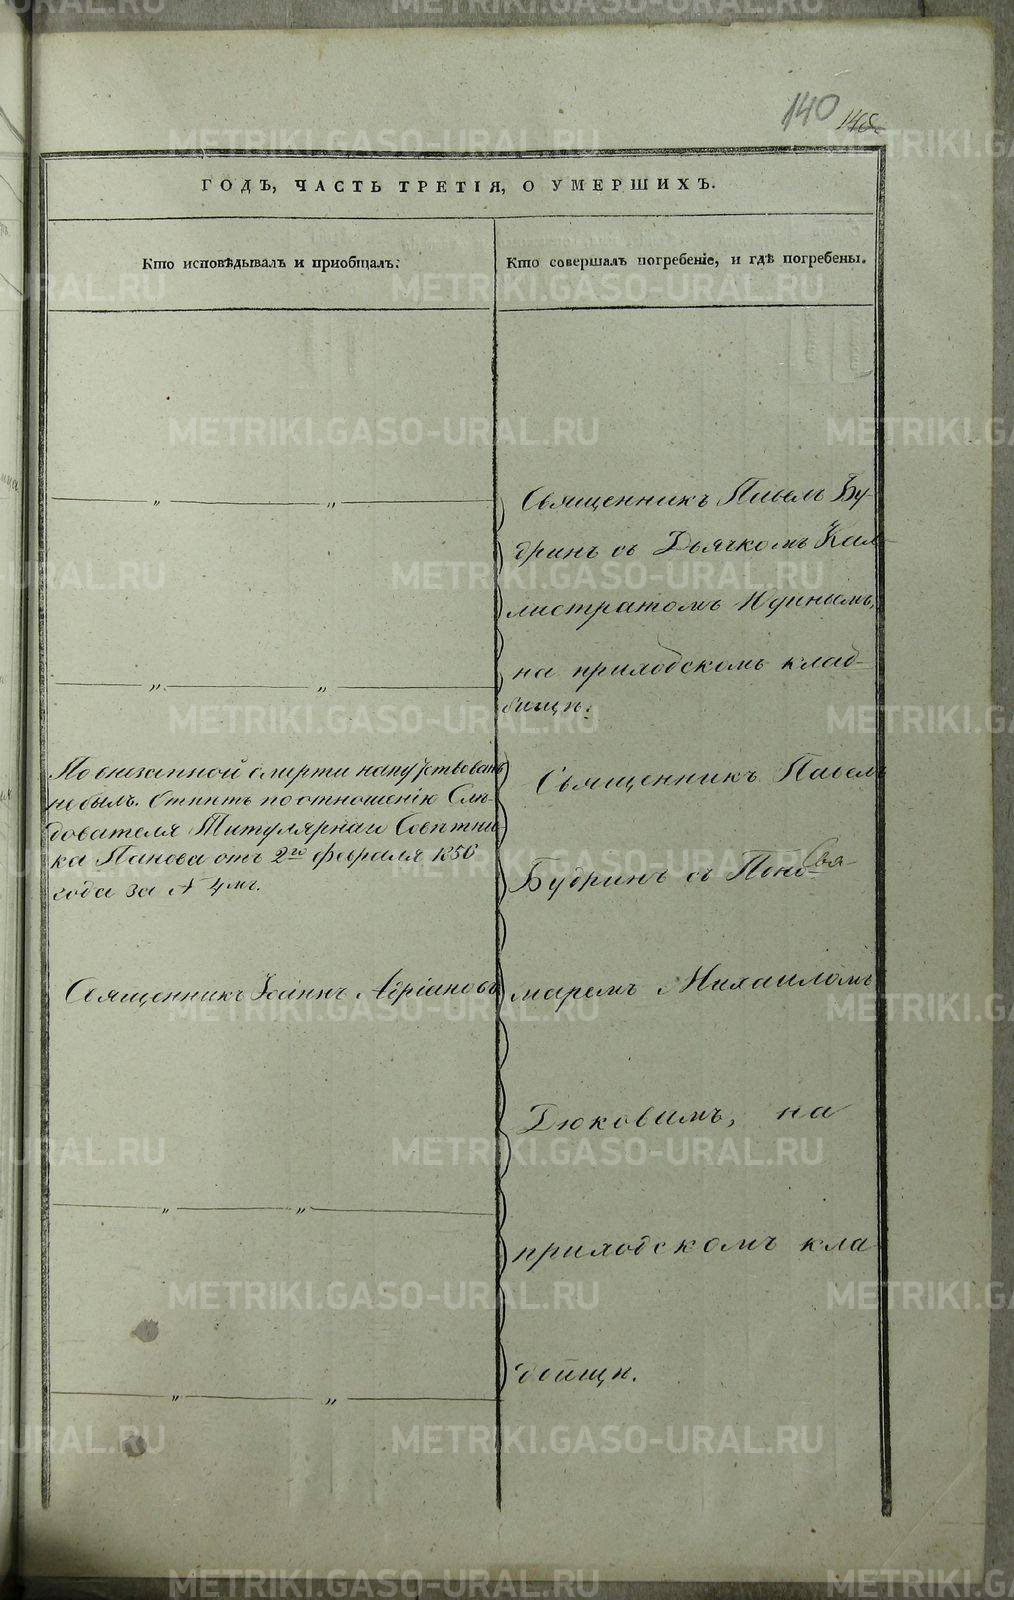 140
ГОДЪ, ЧАСТЬ ТРЕТІЯ, О УМЕРШИХЪ.
Кто исповѣдывалъ и приобщалъ:
Кто совершалъ погребеніе, и гдѣ погребены.
Священникъ Павелъ Бу-
дринъ съ Дьячкомъ Кал-
листратомъ Юдинымъ,
на приходскомъ клад-
бищѣ.
По внезапной смерти напутствованъ
не былъ. Отпѣтъ по отношенію Слѣ-
дователя Титулярнаго Совѣтни-
ка Панова отъ 2го февраля 1856
года за № 4мъ.
Священникъ Павелъ
Будринъ съ Поно-
Священникъ Іоаннъ Адріановъ
маремъ Михаиломъ
Дюковымъ, на
приходскомъ кла
дбищѣ.
METRIKI.GASO-URAL.RU